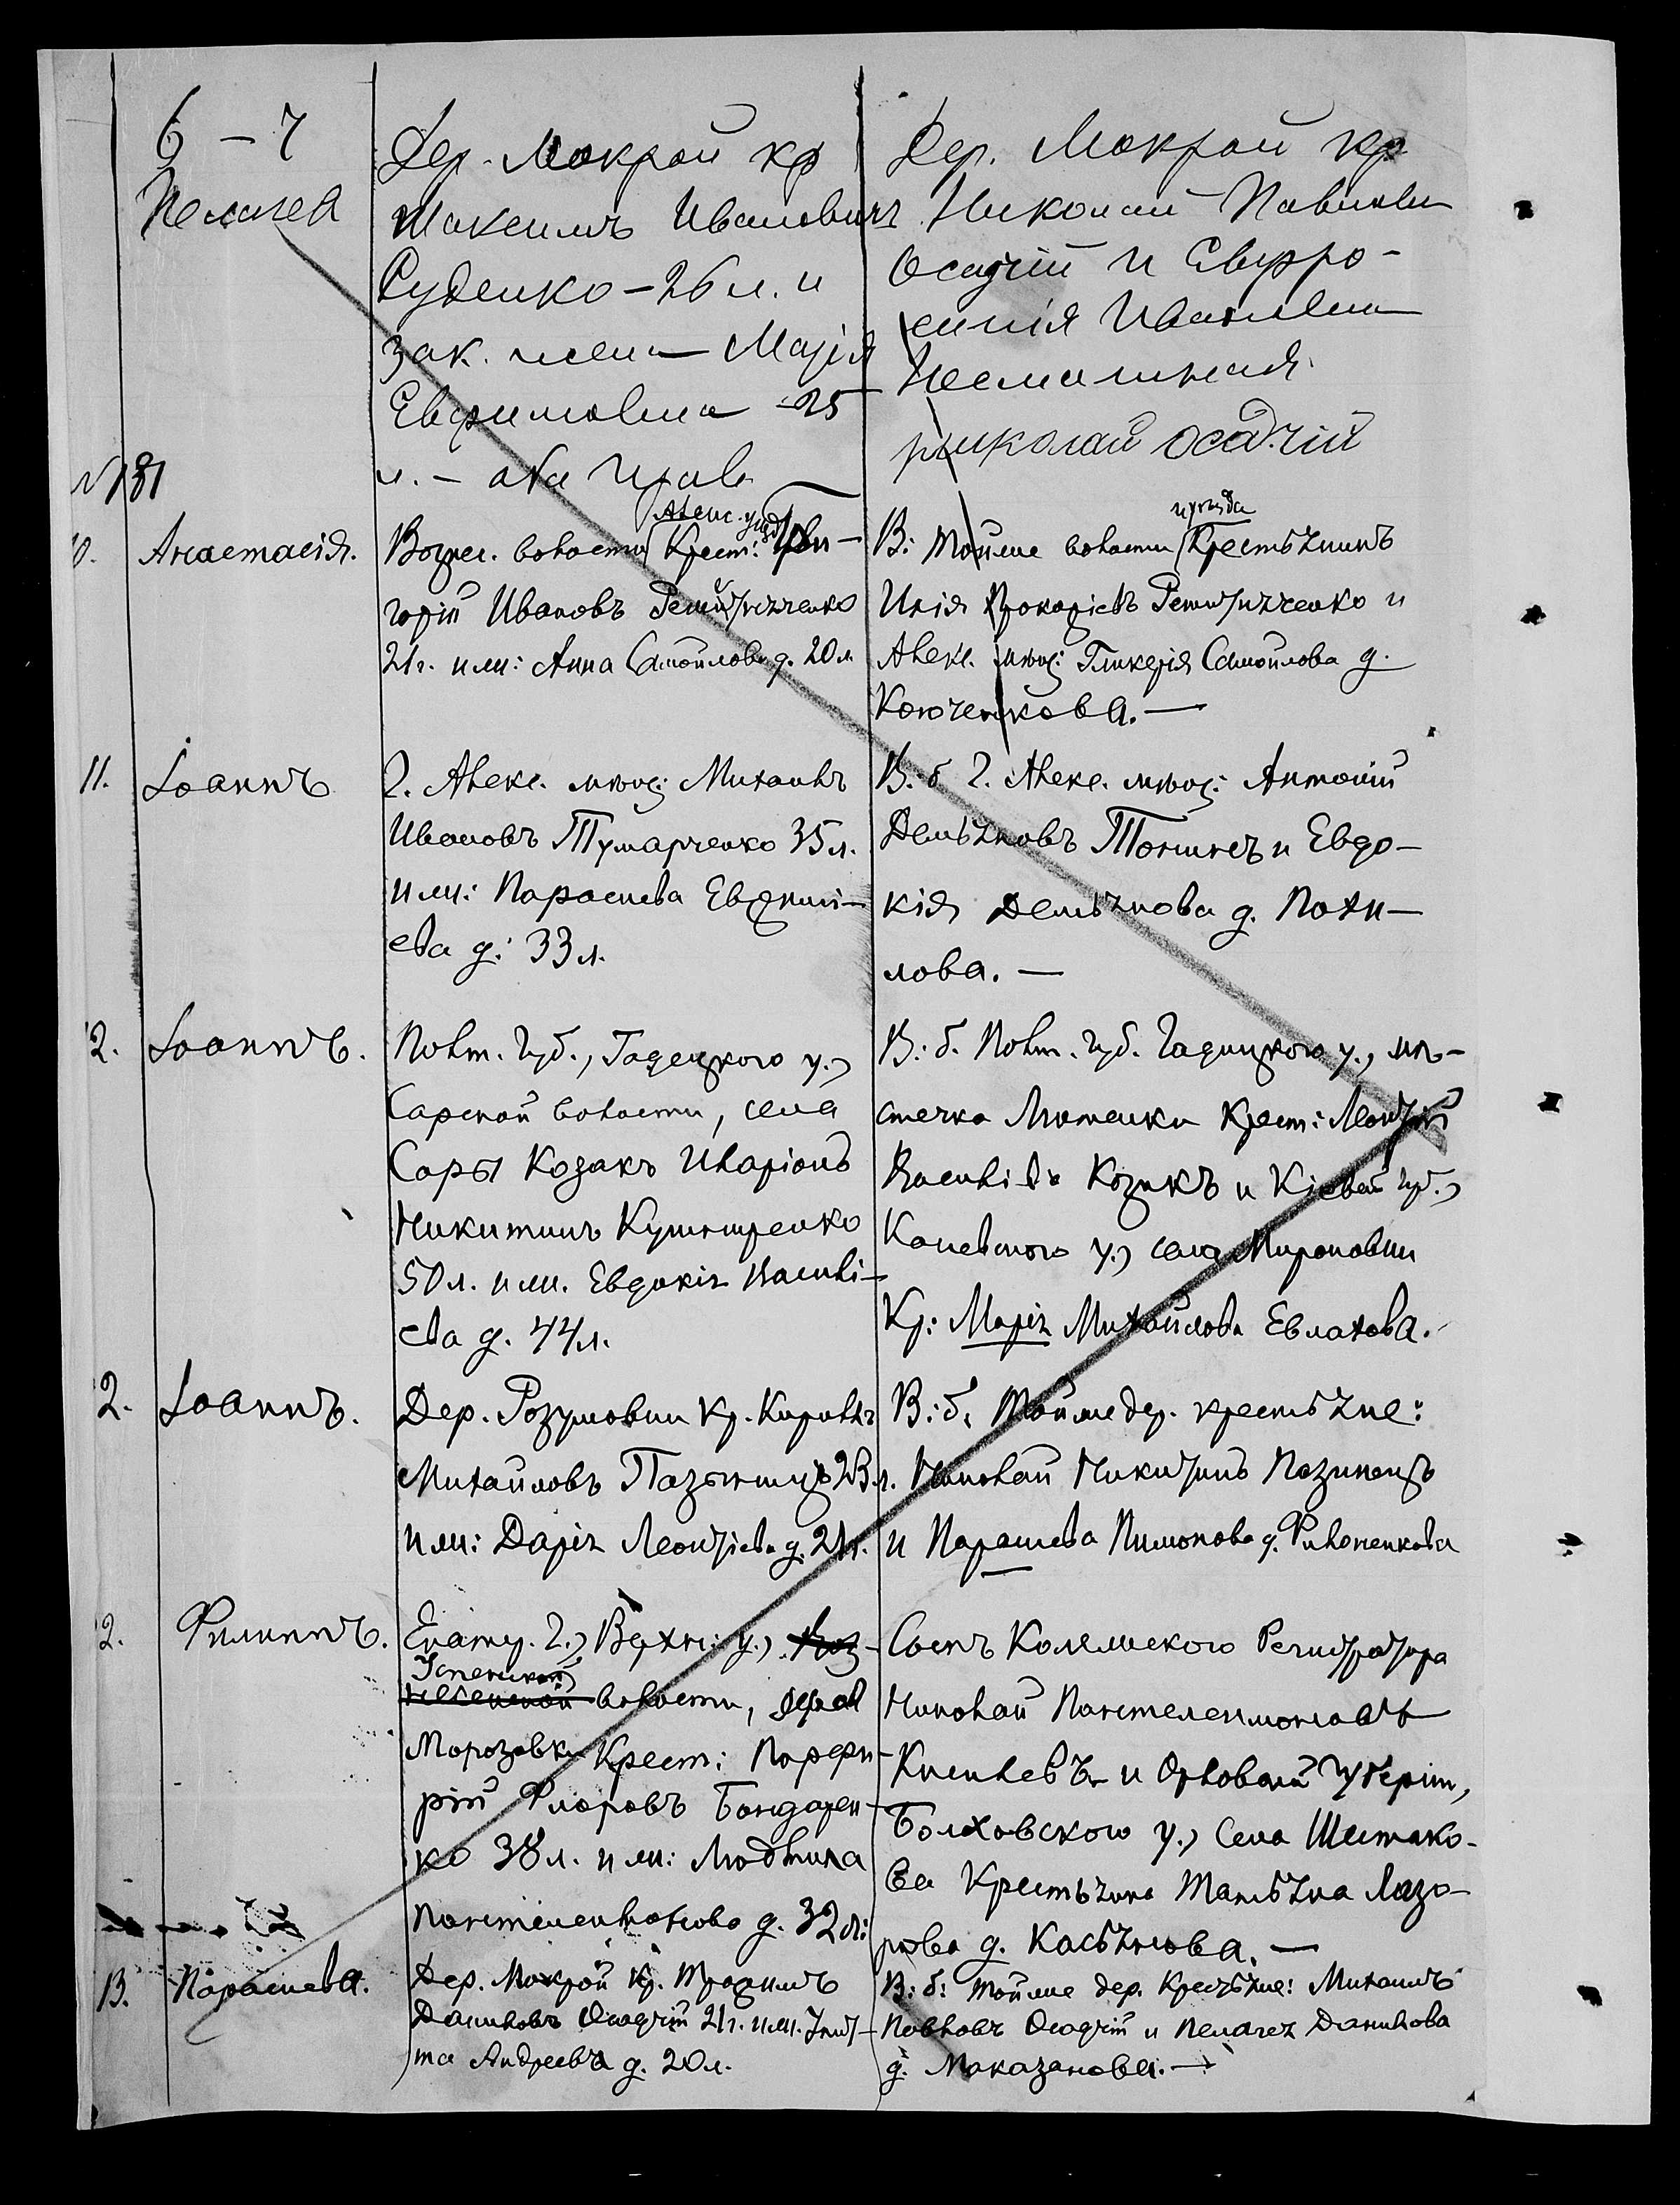 6 – 7
Пелагея
Дер. Мокрой кр
Максимъ Ивановичъ
Руденко – 26 л. и
зак. жена Марія
Евфимовна – 25
л. – оба Прав.
Дер. Мокрой кр
Николай Павлови
Осадчій и Евфро-
синія Ивановна
Николай Осадчій
№ 181
Анастасія.
Вознес. волости Крест: Гри-
горій Ивановъ
21 г. и ж: Анна Самойлова д. 20 л.
В: Тойже волости Крестьянинъ
Илія Прокопіевъ и
Алекс. мѣщ: Гликерія Самойлова д.
11.
Іоаннъ
Г. Алекс. мѣщ: Михаилъ
Ивановъ 35 л.
и ж: Параскева
ева д: 33 л.
В. б. Г. Алекс. мѣщ: Антоній
Демьяновъ и Евдо-
кія Демьянова д. Похи-
лова. —
12.
Іоаннъ.
Полт. Губ., Гадяцкого у.,
Сарской волости, села
Сары Козакъ Иларіонъ
Никитинъ
50 л. и ж. Евдокія Василі-
ева д. 44 л.
В: б. Полт. Губ. Гадяцкого у., мѣ-
стечка Лютеньки Крест: Леонтій
Василіевъ Козакъ и Кіевской губ.,
Каневского у., села Мироновки
Кр: Марія Михайлова Евлахова.
12.
Іоаннъ.
Дер. Розумовки Кр. Кириллъ
Михайловъ 23 л.
и ж: Дарія Леонтіева д. 21 г.
В: б. Тойже дер. крестьяне:
Николай Никитинъ
и Параскева Пимонова д.
12.
Филиппъ.
Екатер. Г., Верхн: у.,
Успенской
волости, дерев
Морозовки Крест: Порфи-
рій Флоровъ Бондарен-
ко 38 л. и ж: Людмила
Пантелеимонова д. 32 л:
Сынъ Колежского Регистратора
Николай Пантелеимоновъ
и Орловской Губерніи,
Болховского у., Села Шестако-
ва Крестьянка Татьяна Лаза-
рова д. Касьянова. —
13.
Параскева.
Дер. Мокрой Кр. Трофимъ
Даниловъ Осадчій 21 г. и ж. Улит-
та Андреева д. 20 л.
В: б: Тойже дер. Крестьяне: Михаилъ
Павловъ Осадчій и Пелагея Данилова
д. —